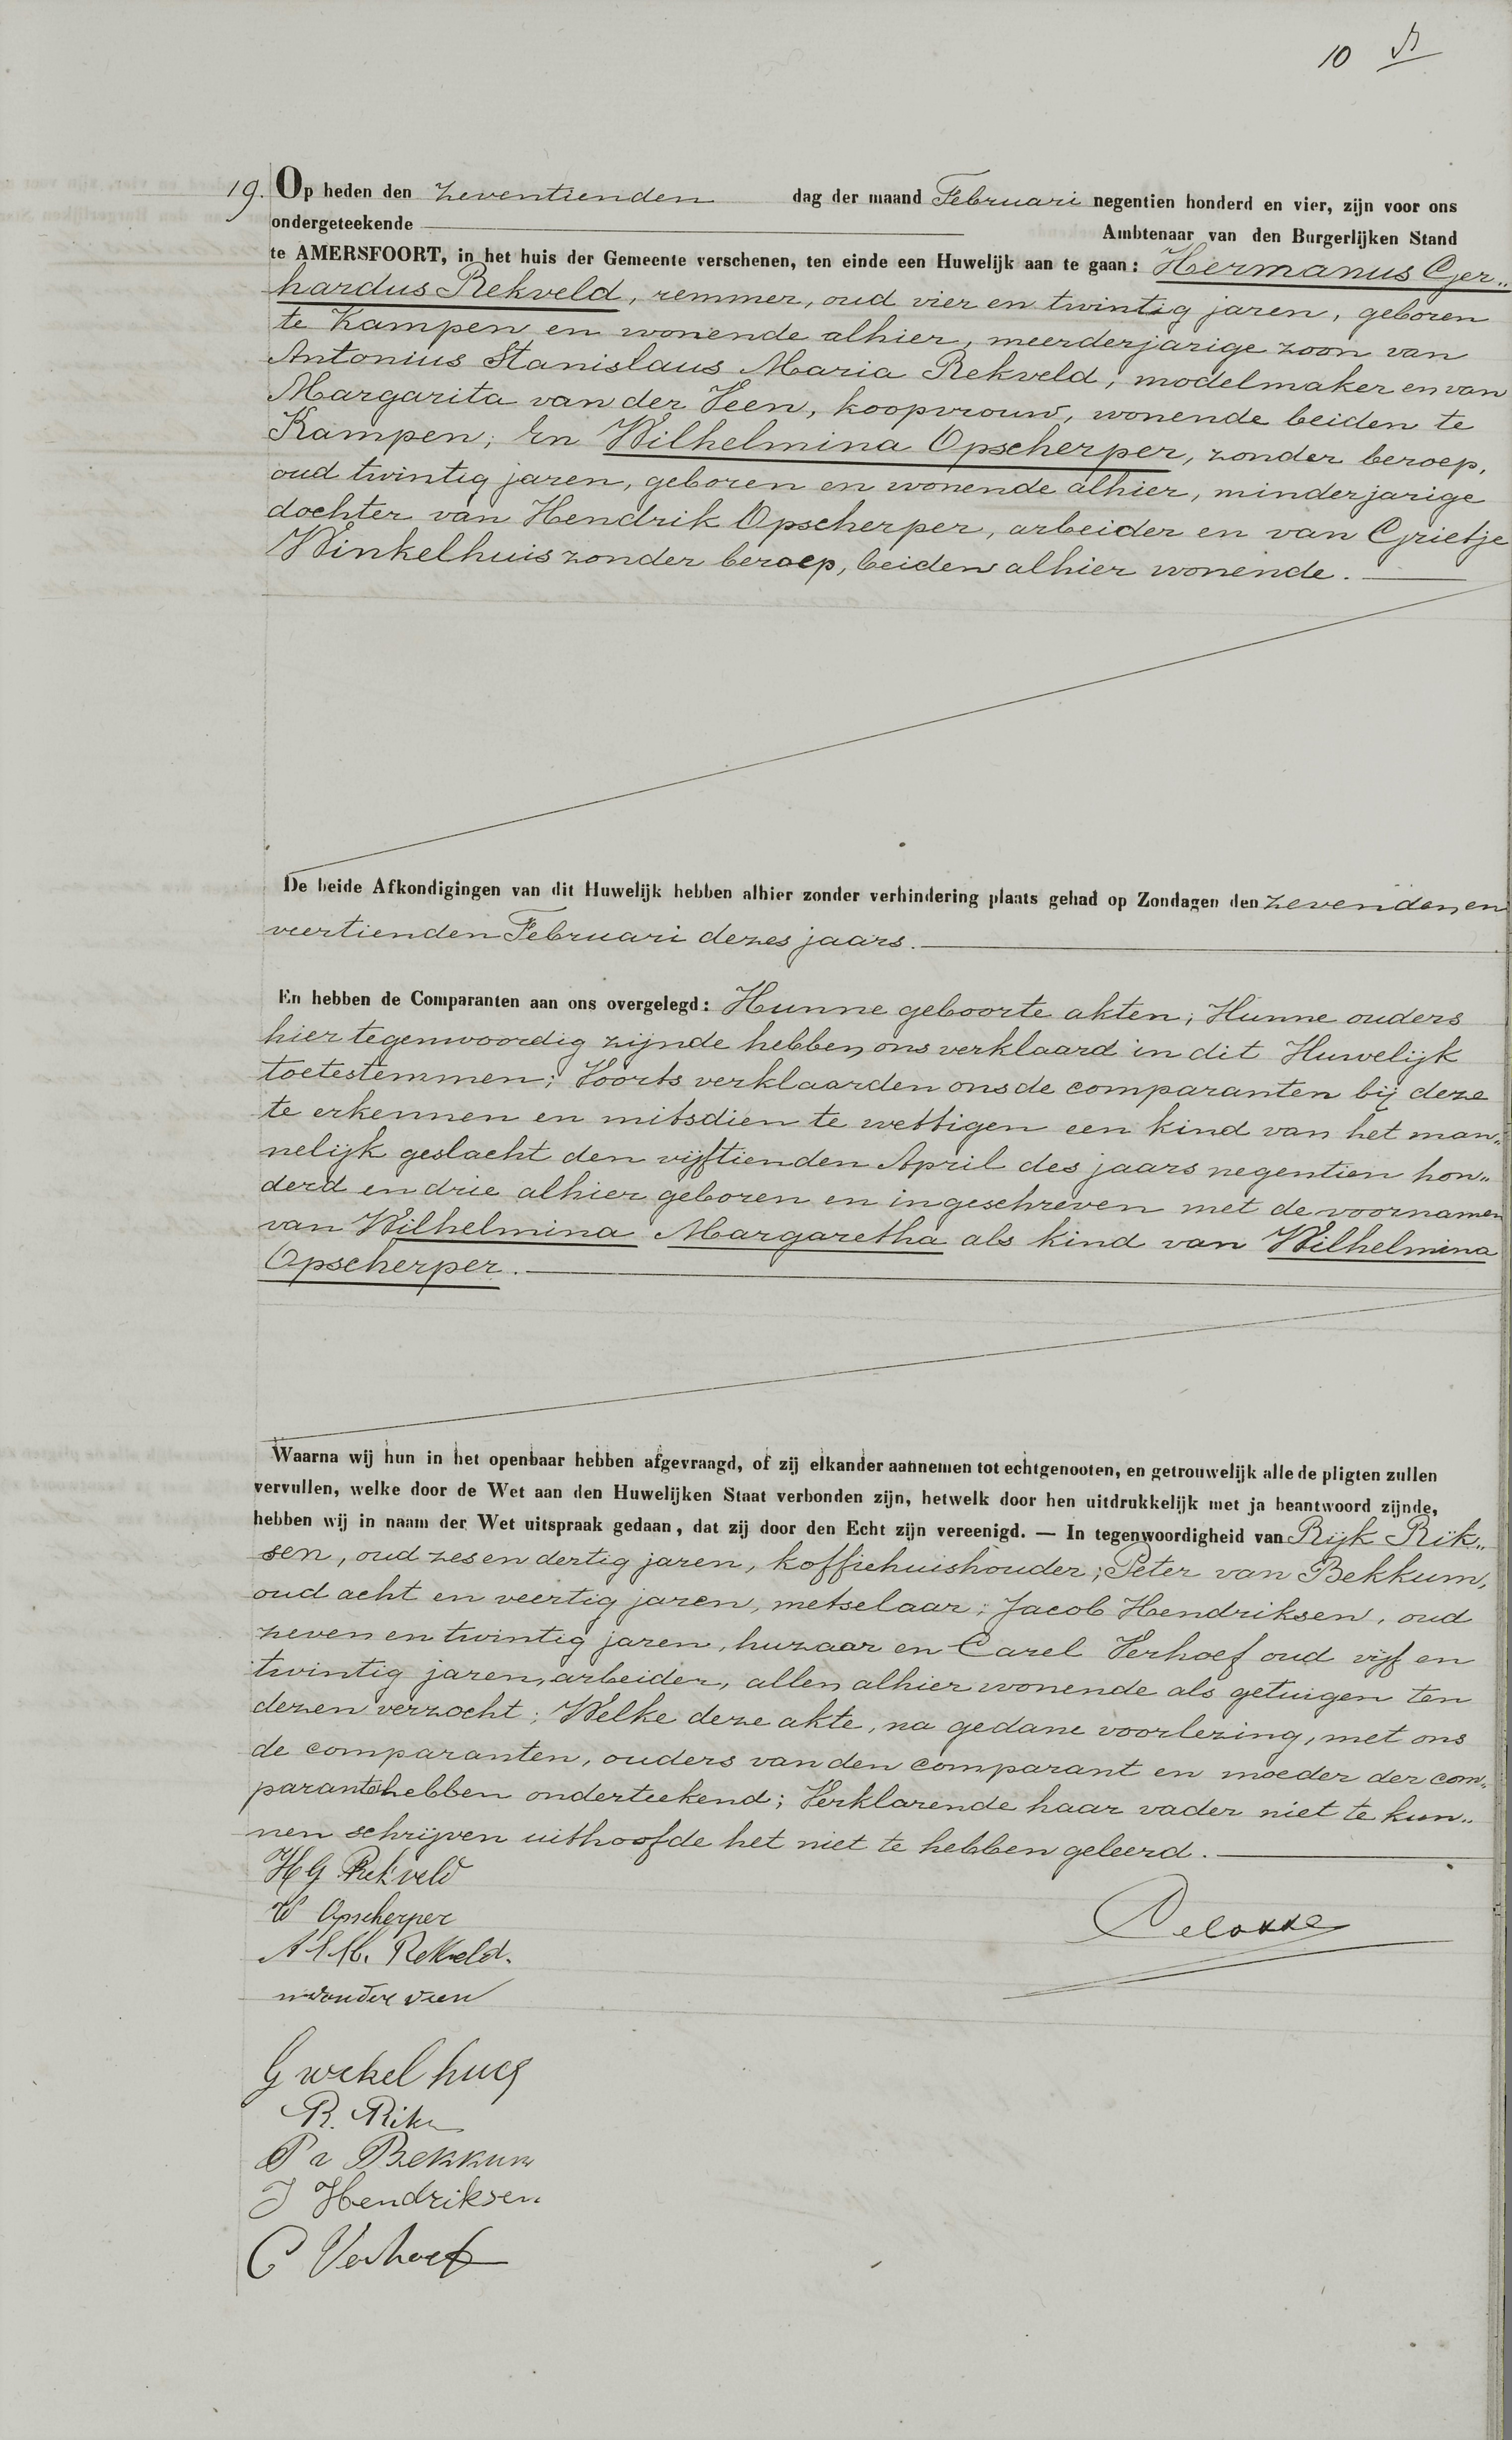 10
19. Op heden den zeventienden dag der maand Februari negentien honderd en vier, zijn voor ons
ondergeteekende Ambtenaar van den Burgerlijken Stand
te AMERSFOORT, in het huis der Gemeente verschenen, ten einde een Huwelijk aan te gaan: Hermanus Ger„
hardus Rekveld, remmer, oud vier en twintig jaren, geboren
te Kampen en wonende alhier, meerderjarige zoon van
Antonius Stanislaus Maria Rekveld, modelmaker en van
Margarita van der Veen, koopvrouw, wonende beiden te
Kampen; En Wilhelmina Opscherper, zonder beroep,
oud twintig jaren, geboren en wonende alhier, minderjarige
dochter van Hendrik Opscherper, arbeider en van Grietje
Winkelhuis zonder beroep, beiden alhier wonende.
De beide Afkondigingen van dit Huwelijk hebben alhier zonder verhindering plaats gehad op Zondagen den zevenden en
veertienden Februari dezes jaars.
En hebben de Comparanten aan ons overgelegd: Hunne geboorte akten; Hunne ouders
hier tegenwoordig zijnde hebben ons verklaard in dit Huwelijk
toetestemmen; Voorts verklaarden ons de comparanten bij deze
te erkennen en mitsdien te wettigen een kind van het man„
nelijk geslacht den vijftienden April des jaars negentien hon„
derd en drie alhier geboren en ingeschreven met de voornamen
van Wilhelmina Margaretha als kind van Wilhelmina
Opscherper.
Waarna wij hun in het openbaar hebben afgevraagd, of zij elkander aannemen tot echtgenooten, en getrouwelijk alle de pligten zullen
vervullen, welke door de Wet aan den Huwelijken Staat verbonden zijn, hetwelk door hen uitdrukkelijk met ja beantwoord zijnde,
hebben wij in naam der Wet uitspraak gedaan, dat zij door den Echt zijn vereenigd. — In tegenwoordigheid van Rijk Rik„
sen, oud zes en dertig jaren, koffiehuishouder; Peter van Bekkum,
oud acht en veertig jaren, metselaar; Jacob Hendriksen, oud
zeven en twintig jaren, huzaar en Carel Verhoef oud vijf en
twintig jaren, arbeider, allen alhier wonende als getuigen ten
dezen verzocht; Welke deze akte, na gedane voorlezing, met ons
de comparanten, ouders van den comparant en moeder der com„
parante hebben onderteekend; Verklarende haar vader niet te kun„
nen schrijven uithoofde het niet te hebben geleerd.
HG Rekveld
W Opscherper
A S M. Rekveld.
G wekel hues
R. Rik
P v Bekkum
J Hendriksen
C Verhoef